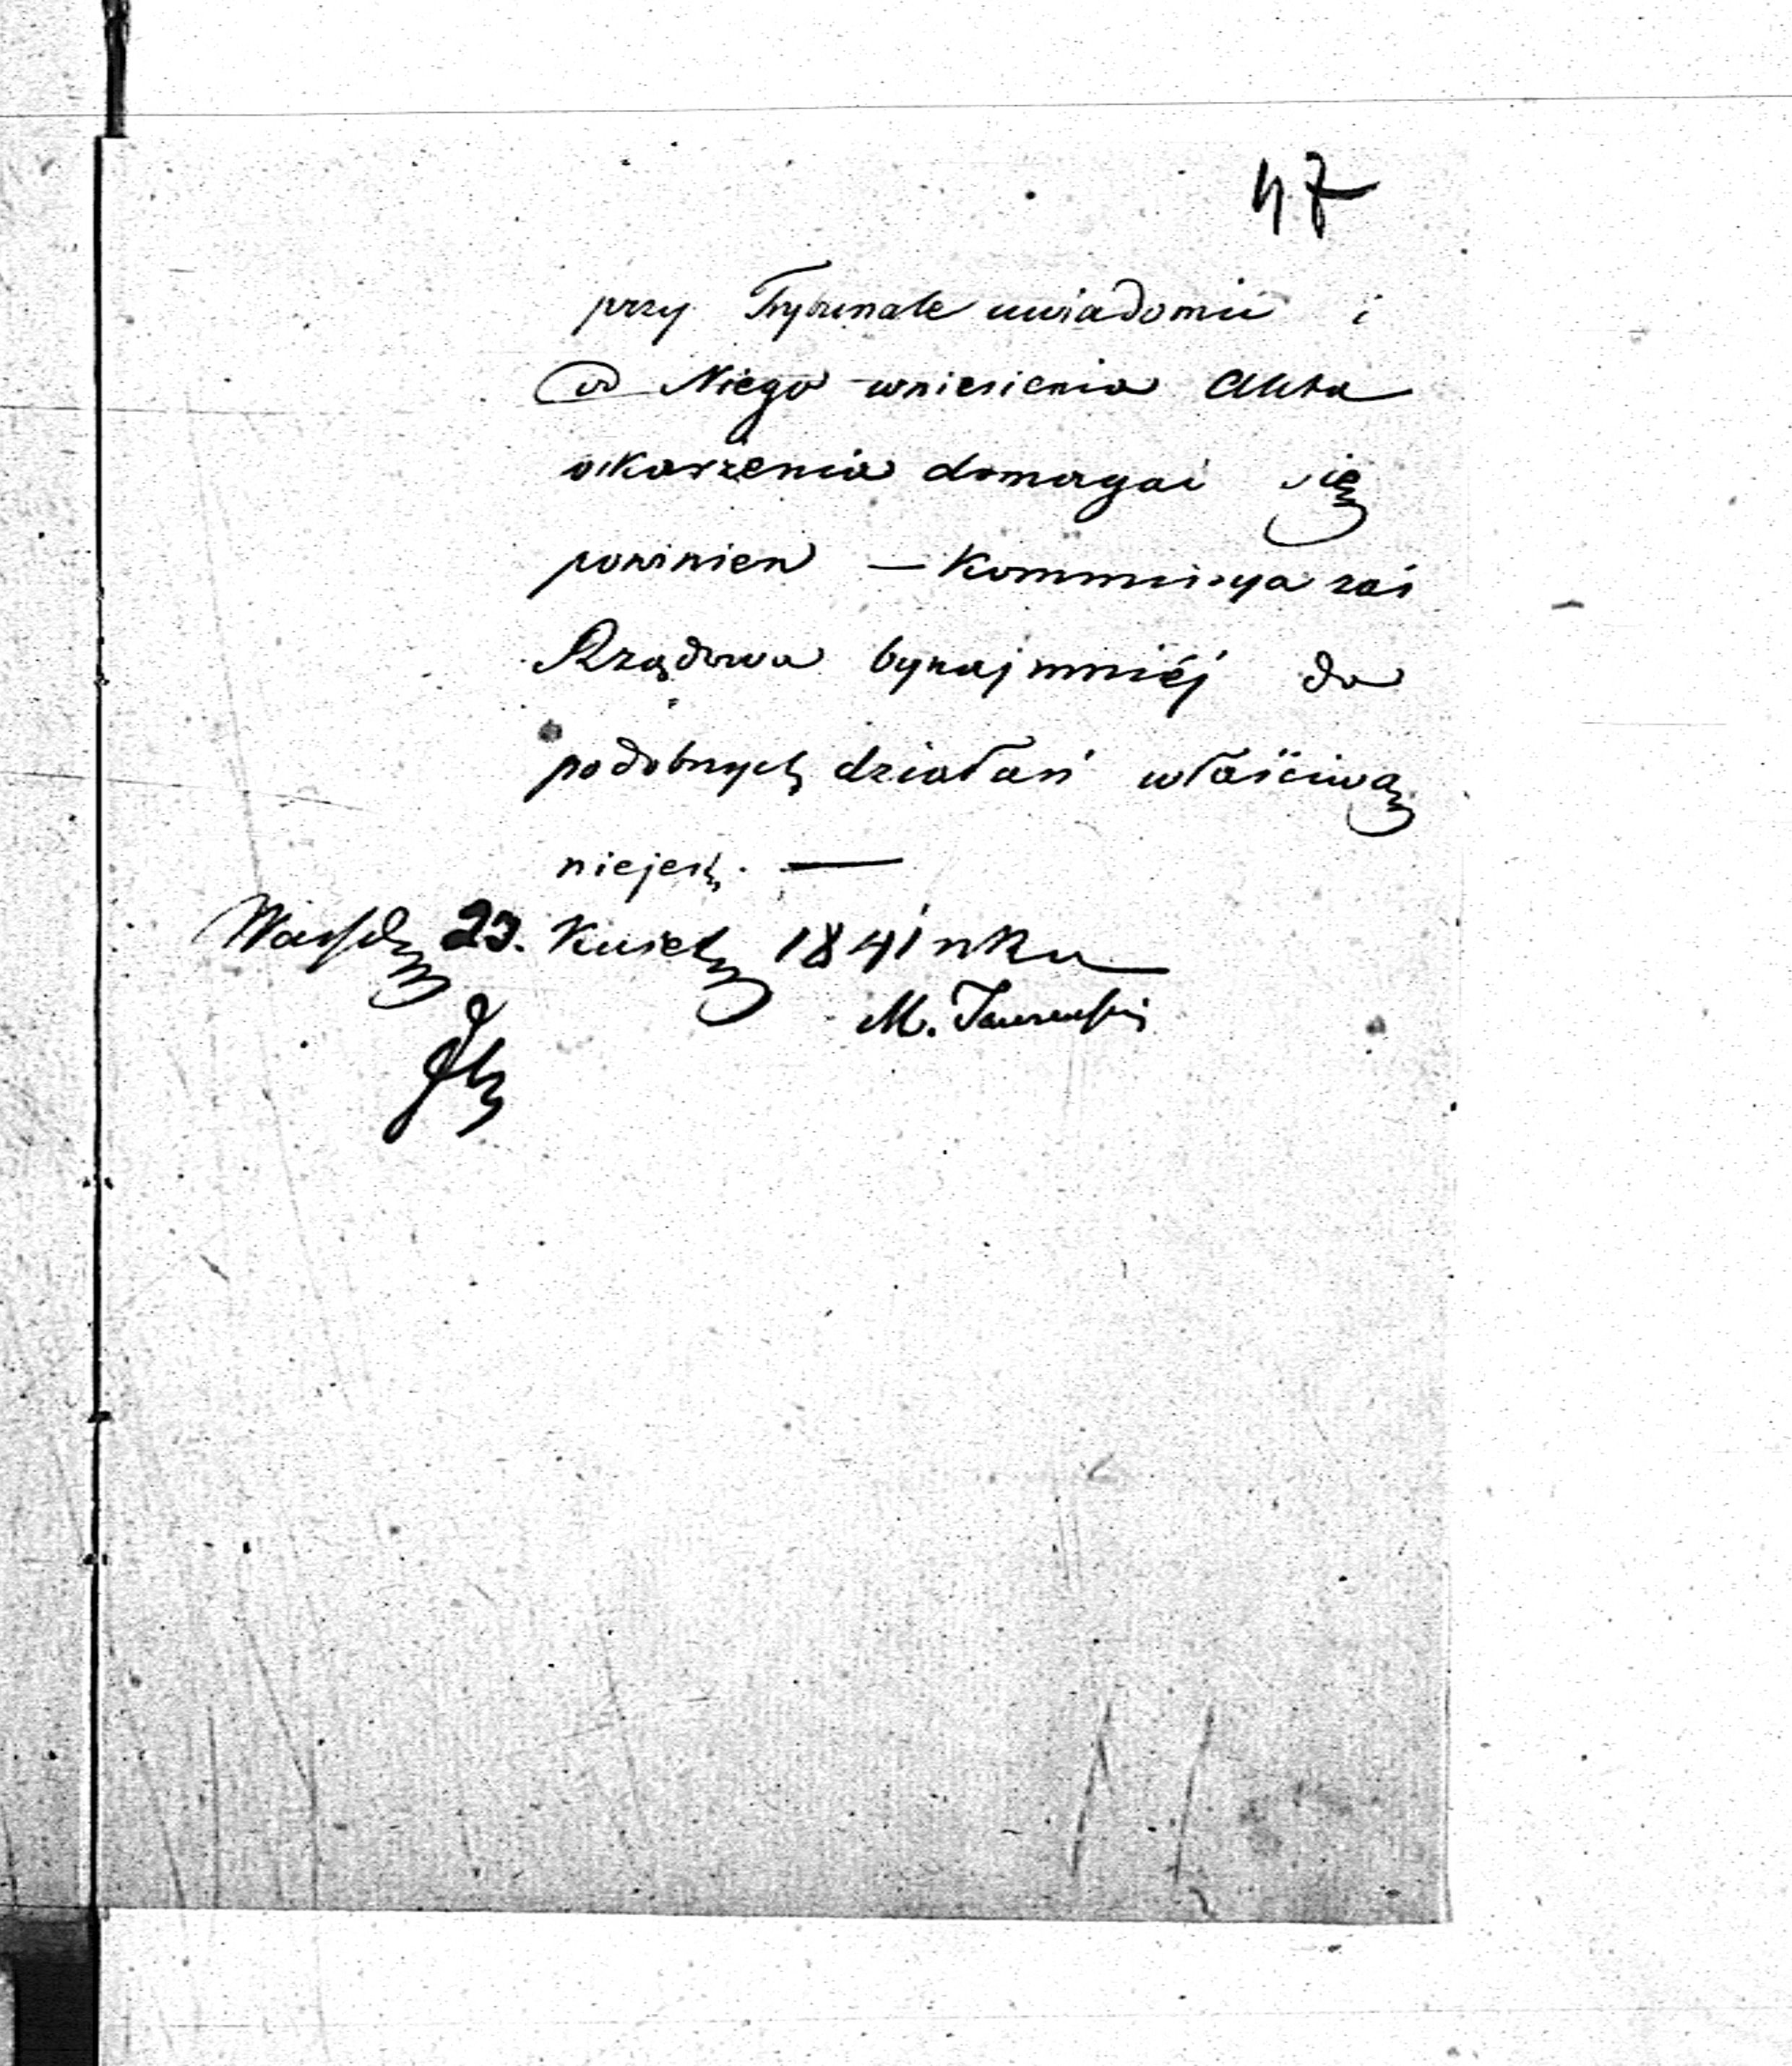 47
przy Trybunale uwiadomić i
od Niego wniesienia Akta
oskarżenia domagać się
powinien — Kommissya zaś
Rządowa bynajmniéj do
podobnych działań właściwą
niejest. —
23. Kwiet 1841 roku
M.